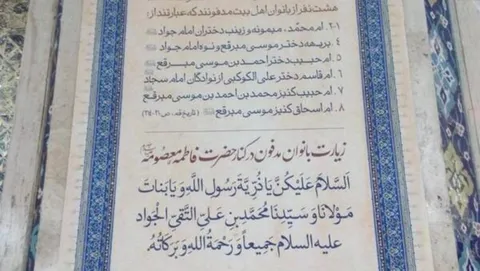 هشت نفر از بانوان اهل بیت مدفونند که عبارتند از:
۱-۳. ام محمّد، میمونه و زینب دختران امام جواد
۴. بریهه دختر موسی مبرقع و نوه امام جواد
۵. ام حبیب دختر احمد بن موسی مبرقع
۶. ام قاسم دختر علی الکوکبی از نوادگان امام سجاد
۷. ام حبیب کنیز محمد بن احمد بن موسی مبرقع
۸. ام اسحاق کنیز موسی مبرقع (تاریخ قم، ص
زیارت بانوان مدفون در کنار حضرت فاطمه معصومه
اَلسَّلامُ عَلَیْکُنَّ یا ذُرِّیَّةَ رَسُولِ اللهِ وَ یا بَناتِ
مَوْلانا وَ سَیِّدِنا مُحَمَّدِ بْنِ عَلِیٍّ التَّقِیِّ الْجَوادِ
عَلَیْهِ السَّلامُ جَمیعاً وَ رَحْمَةُ اللهِ وَ بَرَکاتُهُ